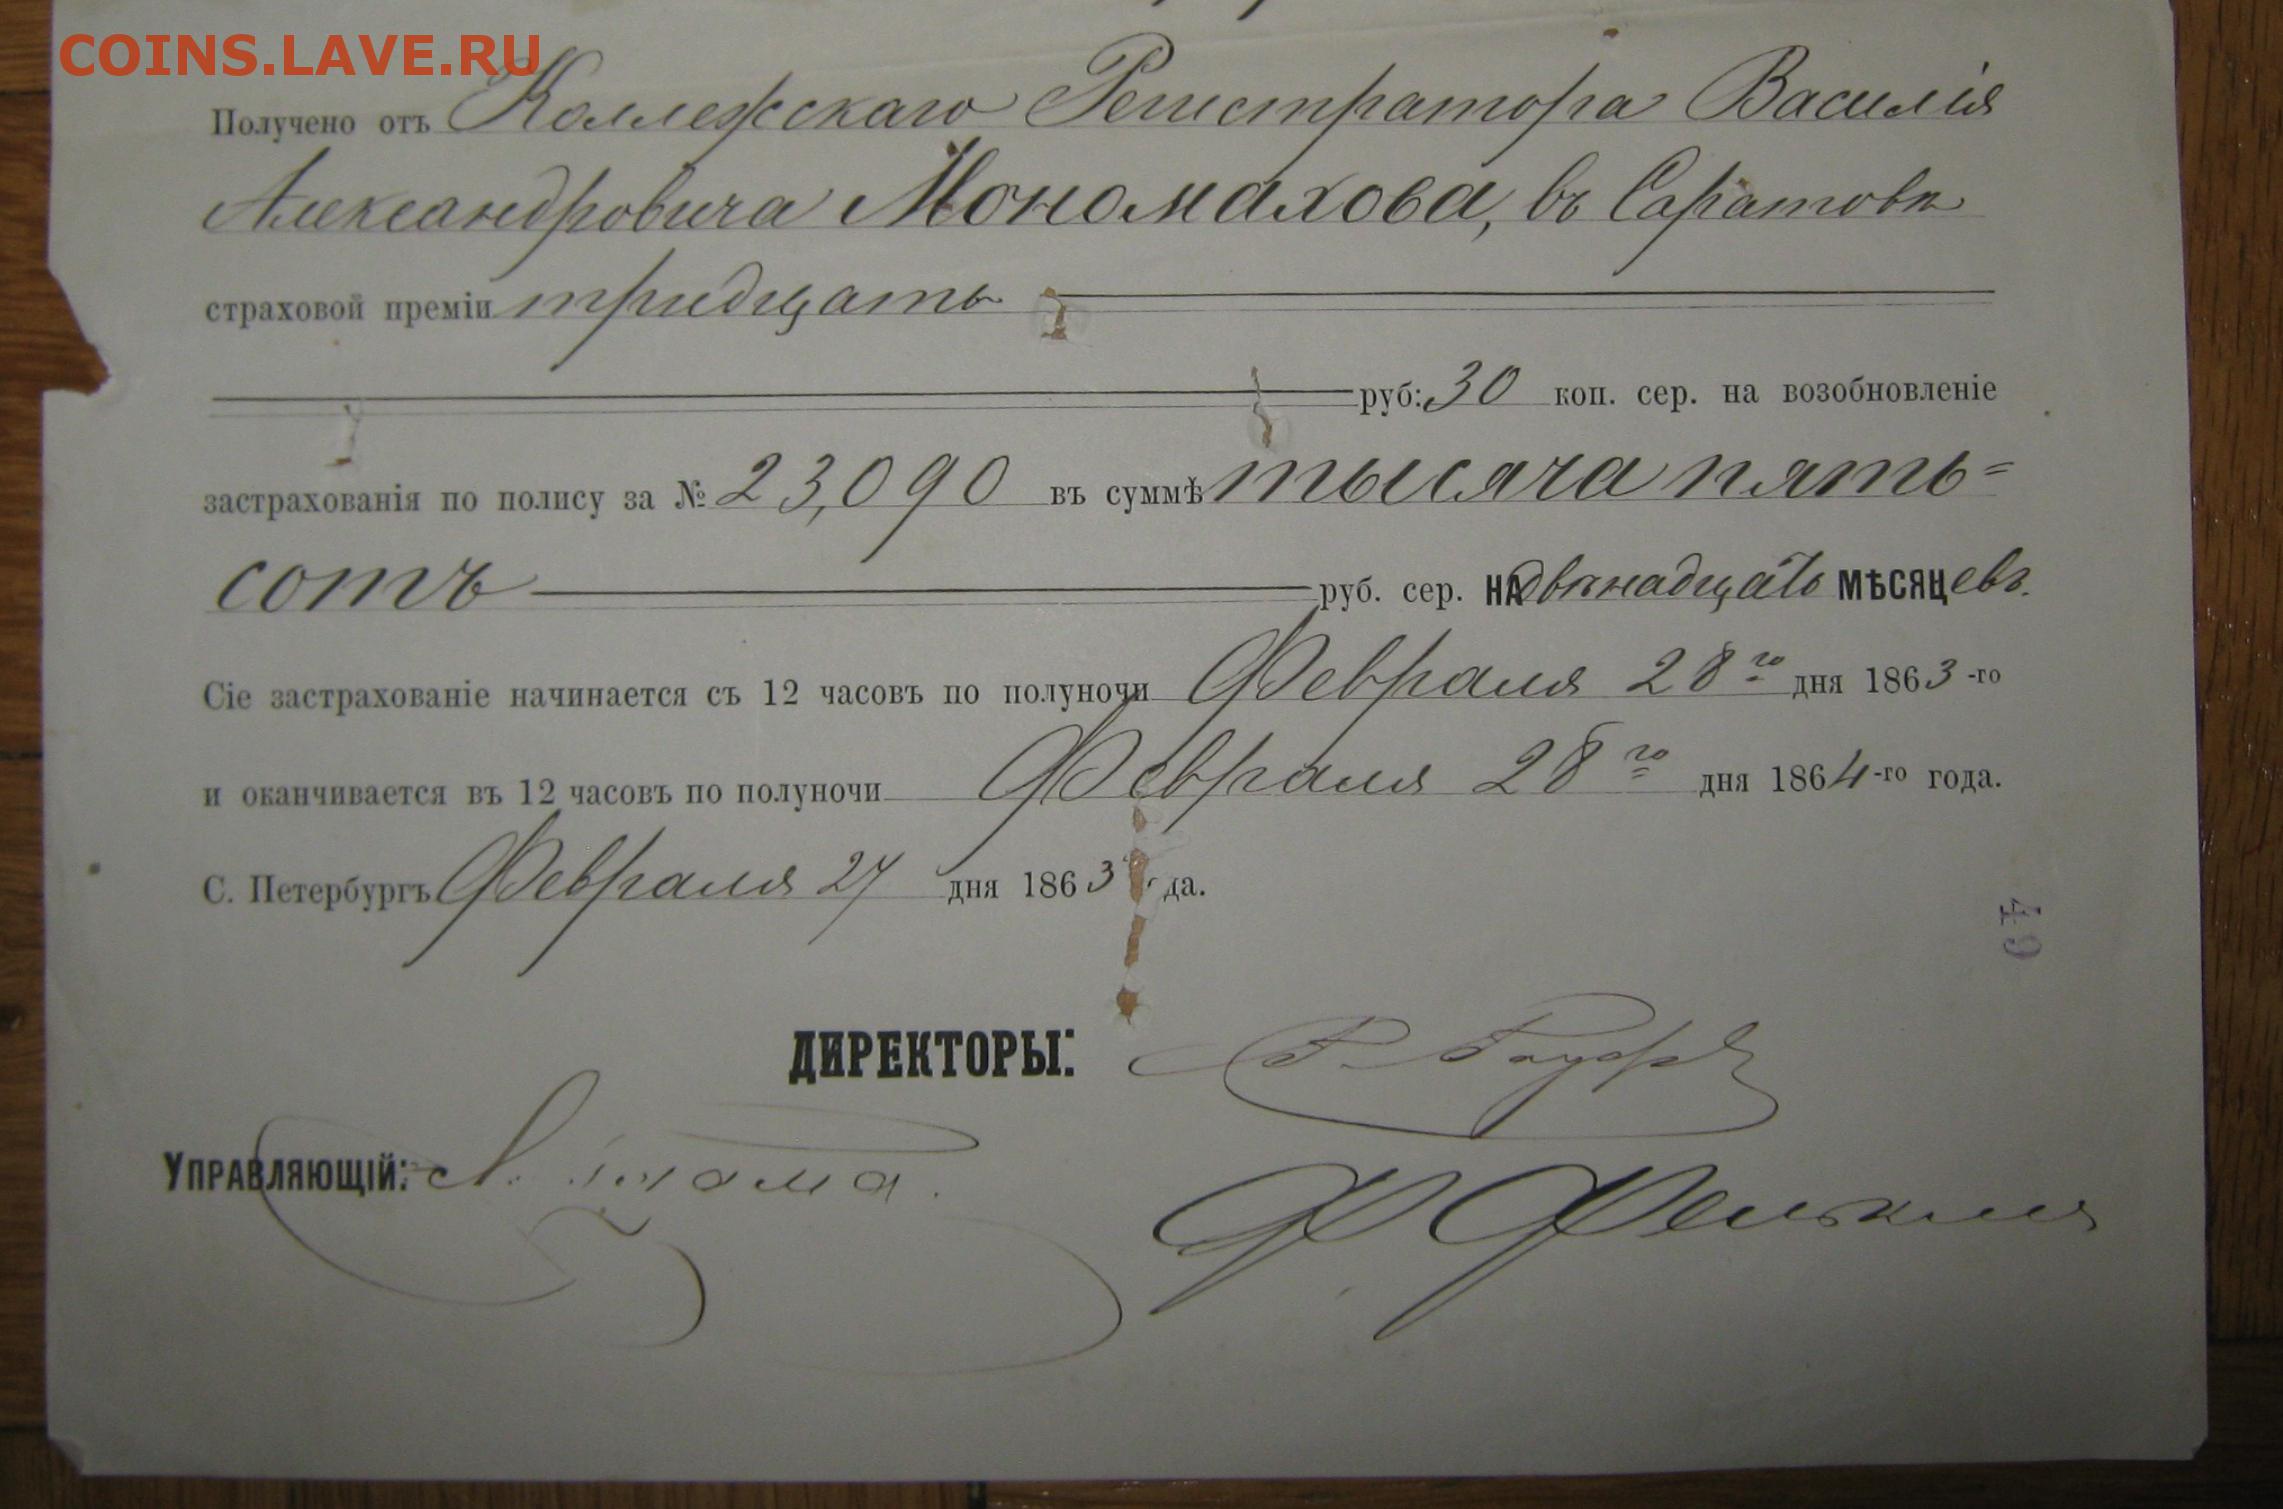 COINS.LAVE.RU
Получено отъ Коллежскаго Регистратора Василія
Александровича Мономахова, въ Саратовѣ
страховой преміи тридцать
руб: 30 коп. сер. на возобновленіе
застрахованія по полису за № 23,090 въ суммѣ тысяча пять=
сотъ руб. сер. НА двѣнадцать МѢСЯЦевъ.
Сіе застрахованіе начинается съ 12 часовъ по полуночи Февраля 28го дня 1863-го
и оканчивается въ 12 часовъ по полуночи Февраля 28го дня 1864-го года.
С. Петербургъ Февраля 27 дня 1863 да.
49
ДИРЕКТОРЫ:
УПРАВЛЯЮЩІЙ: